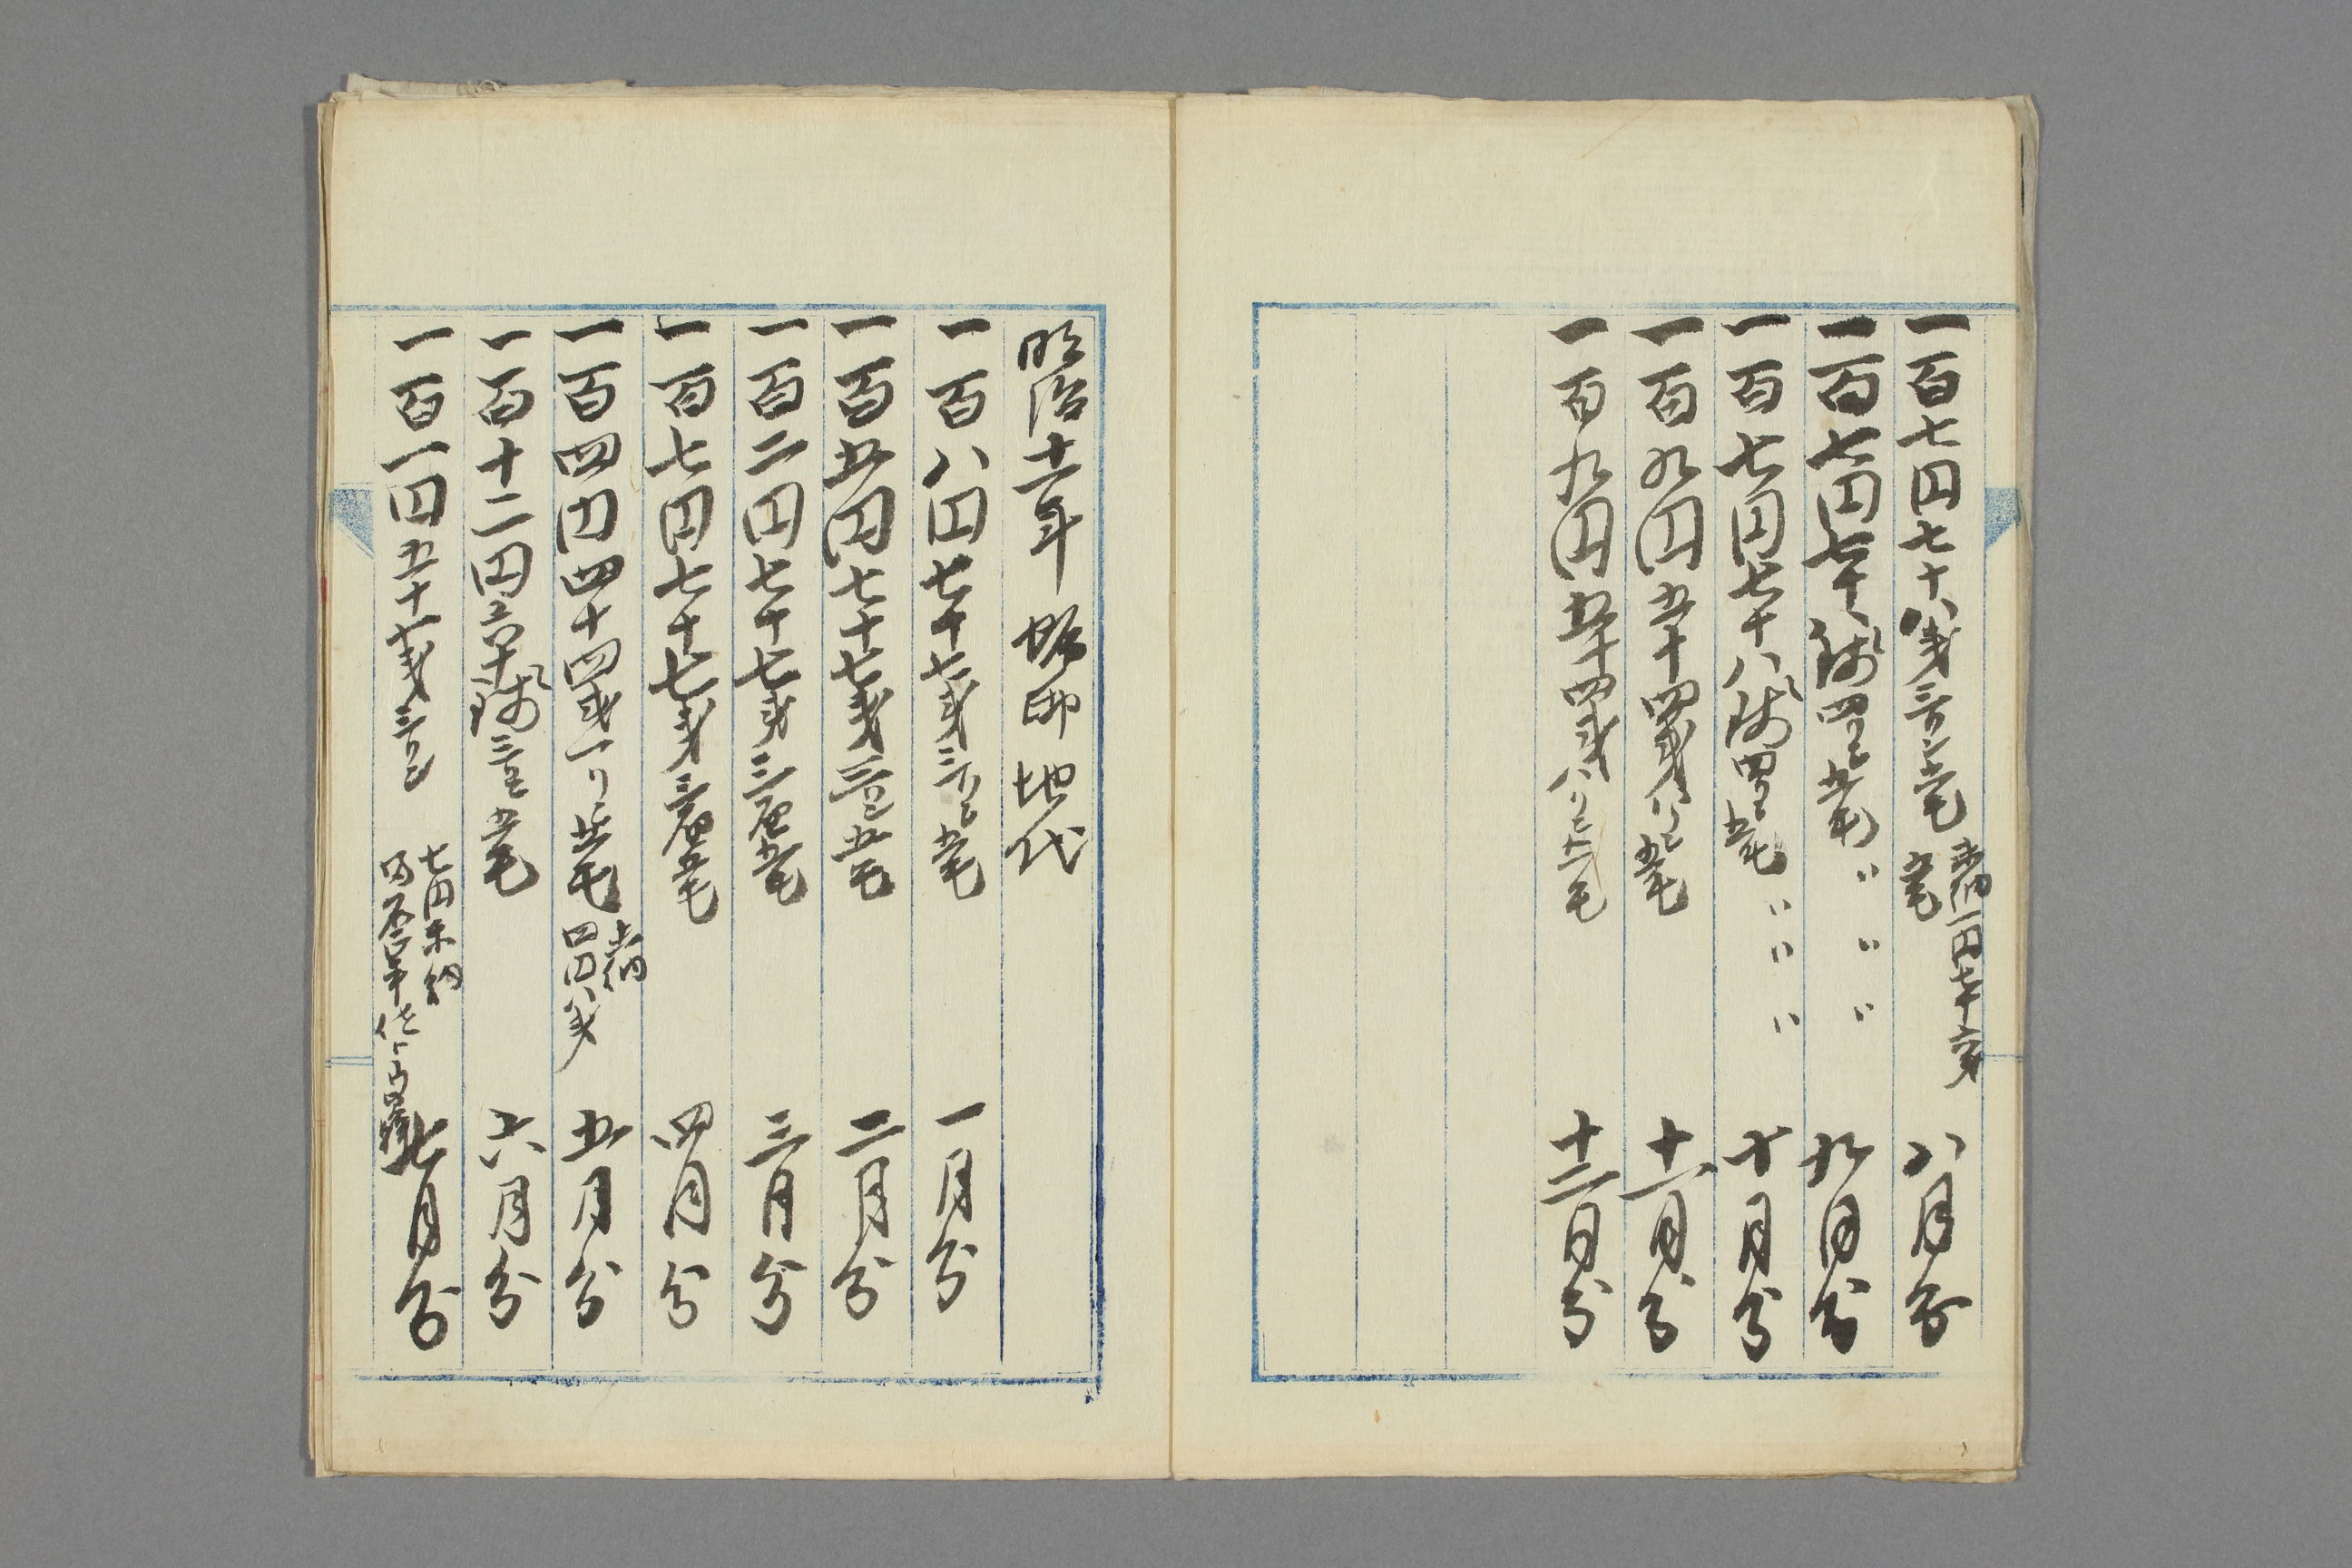 一百七円七十八銭三厘五毛 未納二円七十六銭 八月分
一百七円七十八銭四厘五毛 〃 〃 〃 九月分
一百七円七十八銭四厘五毛 〃 〃 〃 十月分
一百九円五十四銭八厘五毛 十一月分
一百九円五十四銭八厘 毛 十二月分
明治十一年 地代
一百八円七十七銭三厘五毛 一月分
一百五円七十七銭三厘五毛 二月分
一百二円七十七銭三厘五毛 三月分
一百七円七十七銭三厘五毛 四月分
一百四円四十四銭一厘五毛 未納四円八銭 五月分
一百十二円六十八銭三厘五毛 六月分
一百一円五十七銭三厘 七円未納 七月分